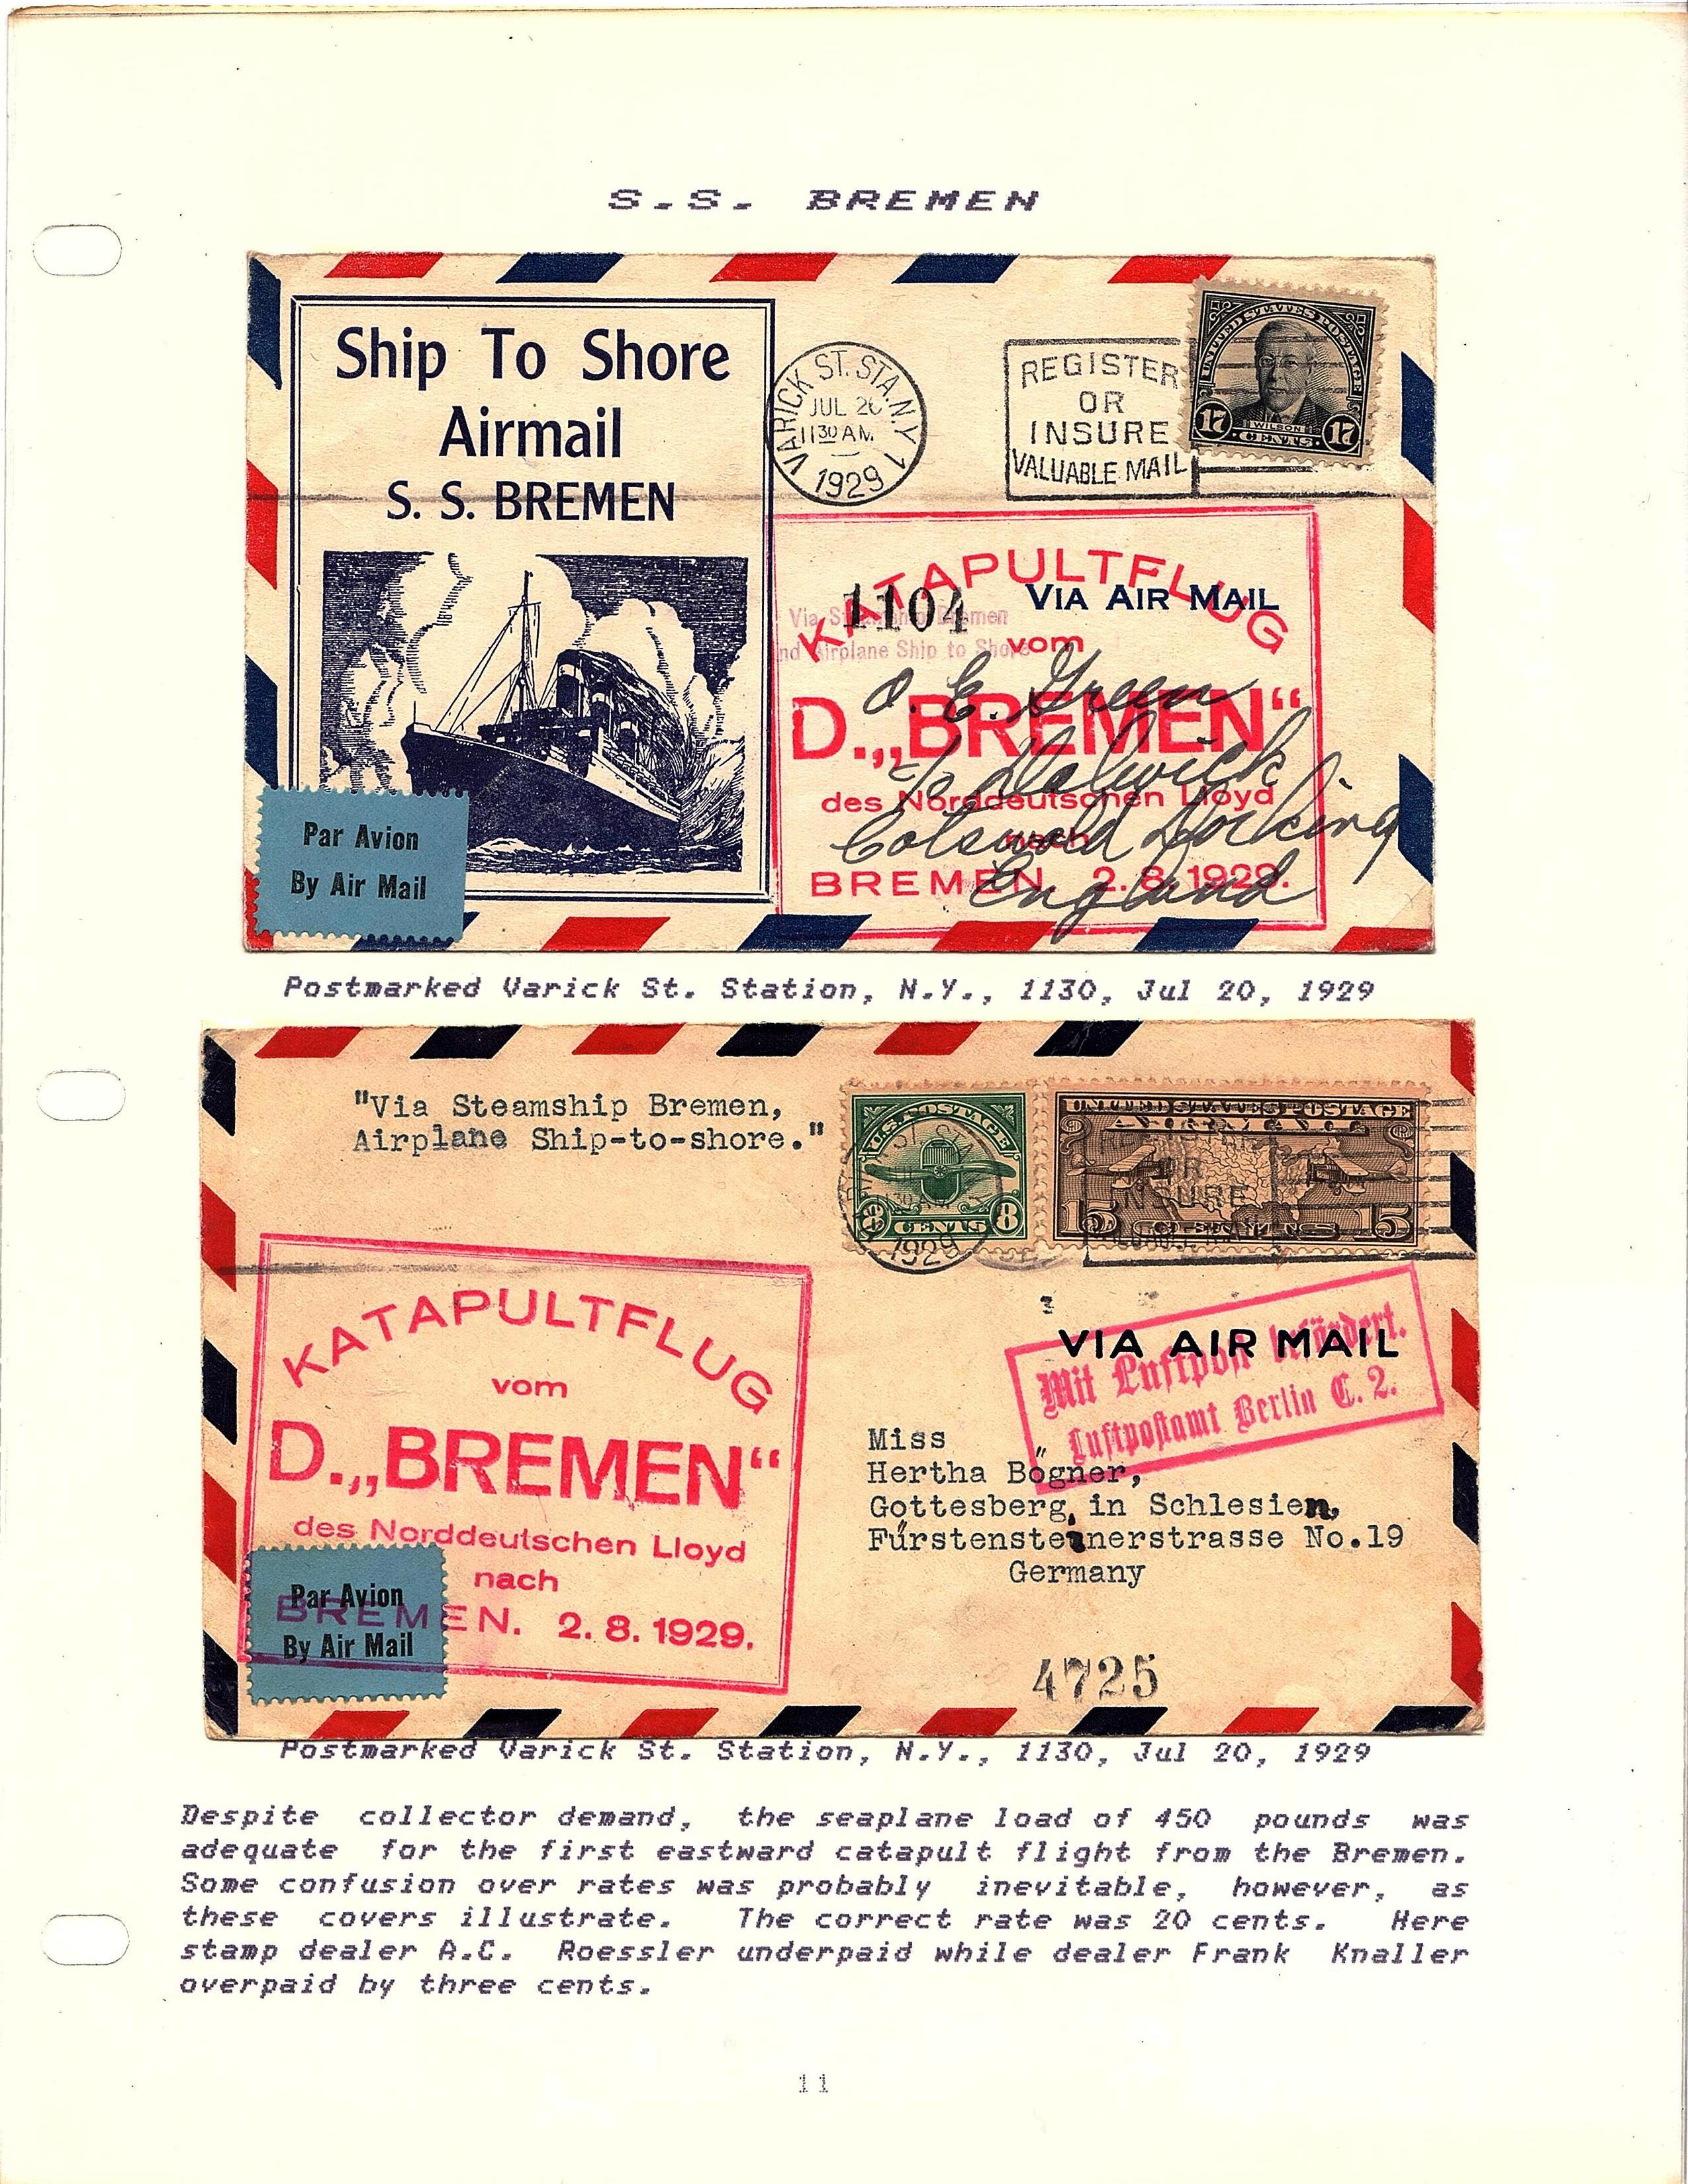 S.S. BREMEN
Ship To Shore
Airmail
S. S. BREMEN
VARICK ST. STA. N.Y. 1
JUL 20
11 30 AM
1929
REGISTER
OR
INSURE
VALUABLE MAIL
UNITED STATES POSTAGE
WILSON
17 CENTS 17
KATAPULTFLUG
1104
VIA AIR MAIL
Via Steamship Bremen
nd Airplane Ship to Shore
vom
O. E. Green
D. „BREMEN“
c/o
des Norddeutschen Lloyd
Cotswold Dorking
nach
BREMEN 2.8.1929.
England
Par Avion
By Air Mail
Postmarked Varick St. Station, N.Y., 1130, Jul 20, 1929
"Via Steamship Bremen,
Airplane Ship-to-shore."
U.S. POSTAGE
8 CENTS 8
1929
UNITED STATES POSTAGE
AIR MAIL
OR
INSURE
15 CENTS 15
KATAPULTFLUG
vom
D. „BREMEN“
des Norddeutschen Lloyd
nach
BREMEN. 2.8.1929.
Par Avion
By Air Mail
VIA AIR MAIL
Mit Luftpost befördert.
Luftpostamt Berlin C. 2.
Miss
Hertha Bögner,
Gottesberg in Schlesien,
Fürstensteinerstrasse No.19
Germany
4725
Postmarked Varick St. Station, N.Y., 1130, Jul 20, 1929
Despite collector demand, the seaplane load of 450 pounds was
adequate for the first eastward catapult flight from the Bremen.
Some confusion over rates was probably inevitable, however, as
these covers illustrate. The correct rate was 20 cents. Here
stamp dealer A.C. Roessler underpaid while dealer Frank Knaller
overpaid by three cents.
11